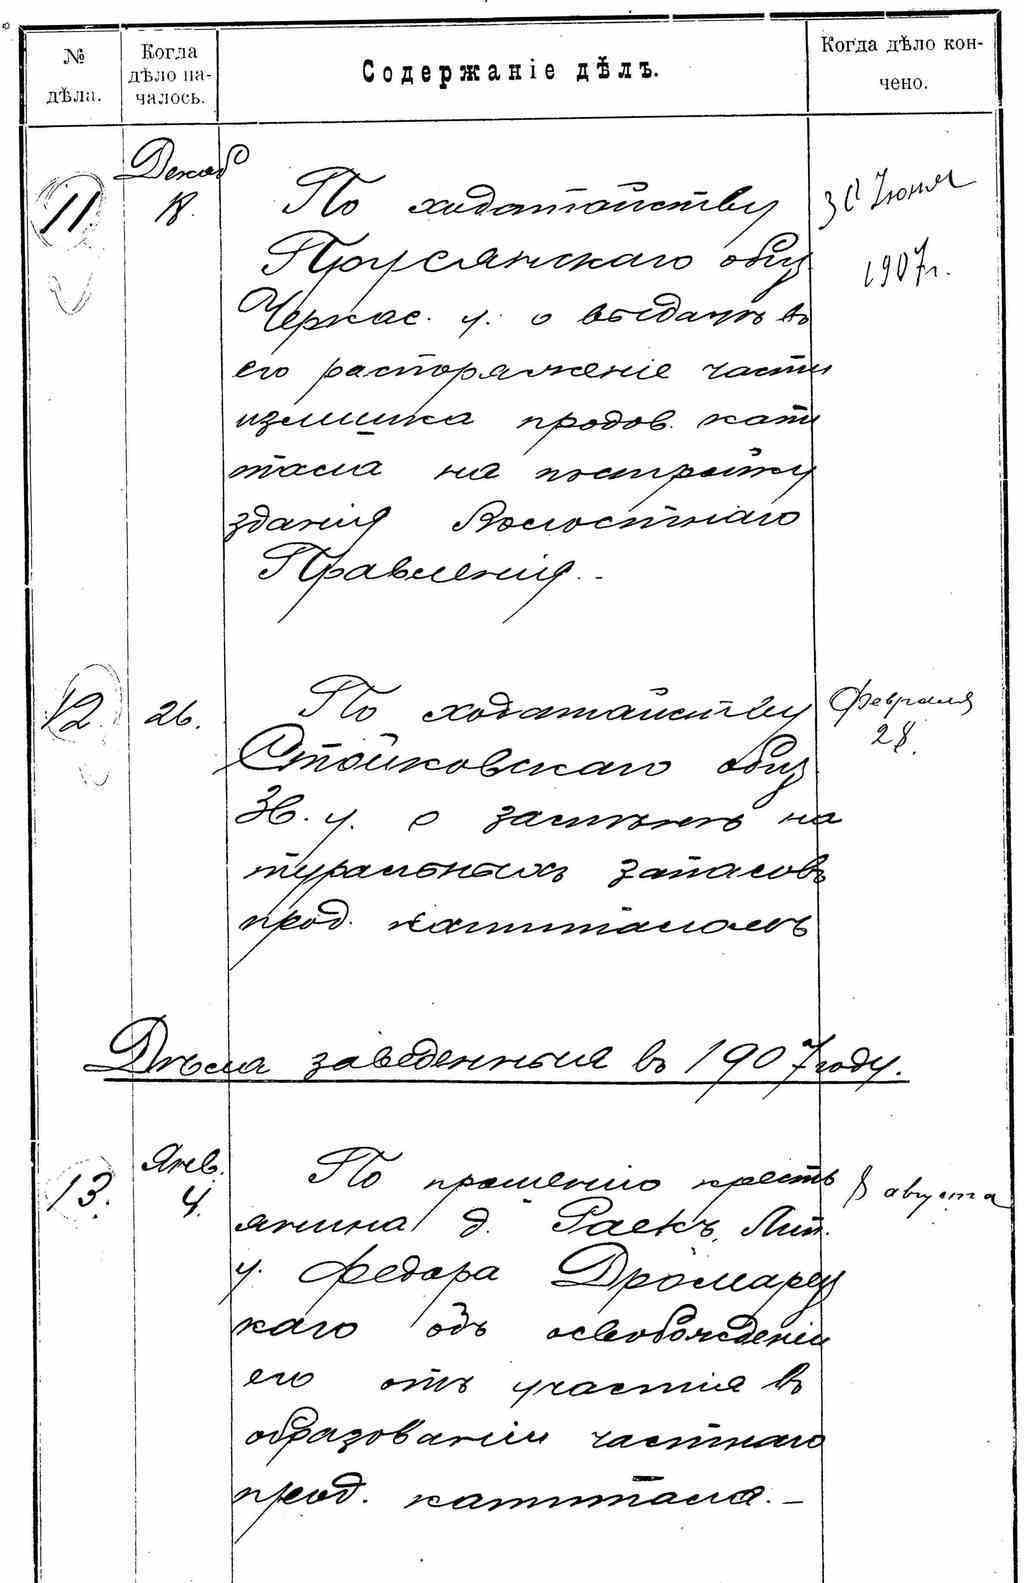 № дѣла.
Когда дѣло на-
чалось.
Содержаніе дѣлъ.
Когда дѣло кон-
чено.
11
Декаб
18.
По ходатайству
Прусянскаго общ
Черкас. у. о выдачѣ въ
его распоряженіе части
излишка продов. капи
тала на постройку
зданія Волостнаго
Правленія.
30 Июня
1907 г.
12.
26.
По ходатайству
Стойковскаго общ.
Зв. у. о замѣнѣ на
туральныхъ запасовъ
прод. капиталомъ
Февраля
28.
Дѣла заведенныя въ 1907 году.
13.
Янв.
4.
По прошенію кресть
янина д. Раекъ, Лип.
у. Федора Дромарец
каго объ освобожденіи
его отъ участія въ
образованіи частнаго
прод. капитала. –
8 августа